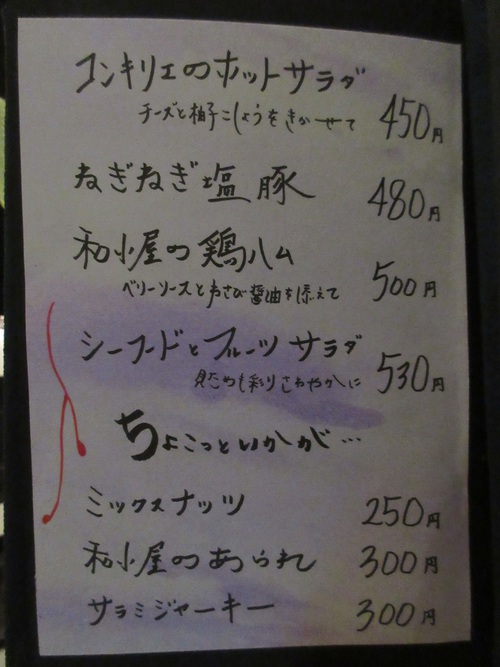 コンキリエのホットサラダ
チーズと柚子こしょうをきかせて 450円
ねぎねぎ塩豚 480円
和小屋の鶏ハム
ベリーソースとわさび醤油を添えて 500円
シーフードとフルーツサラダ
見ためも彩りさわやかに 530円
ちょこっといかが…
ミックスナッツ 250円
和小屋のあられ 300円
サラミジャーキー 300円